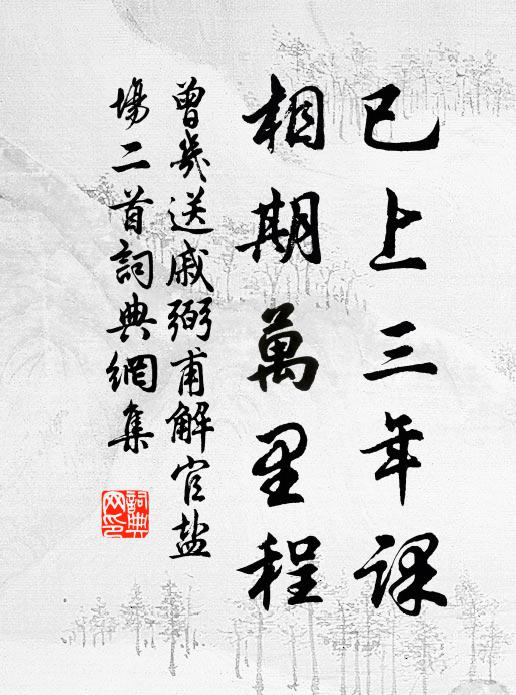 已上三年課
相期萬里程
曾幾送戚弼甫解官盐
場二首詞典網集
詞典
网印